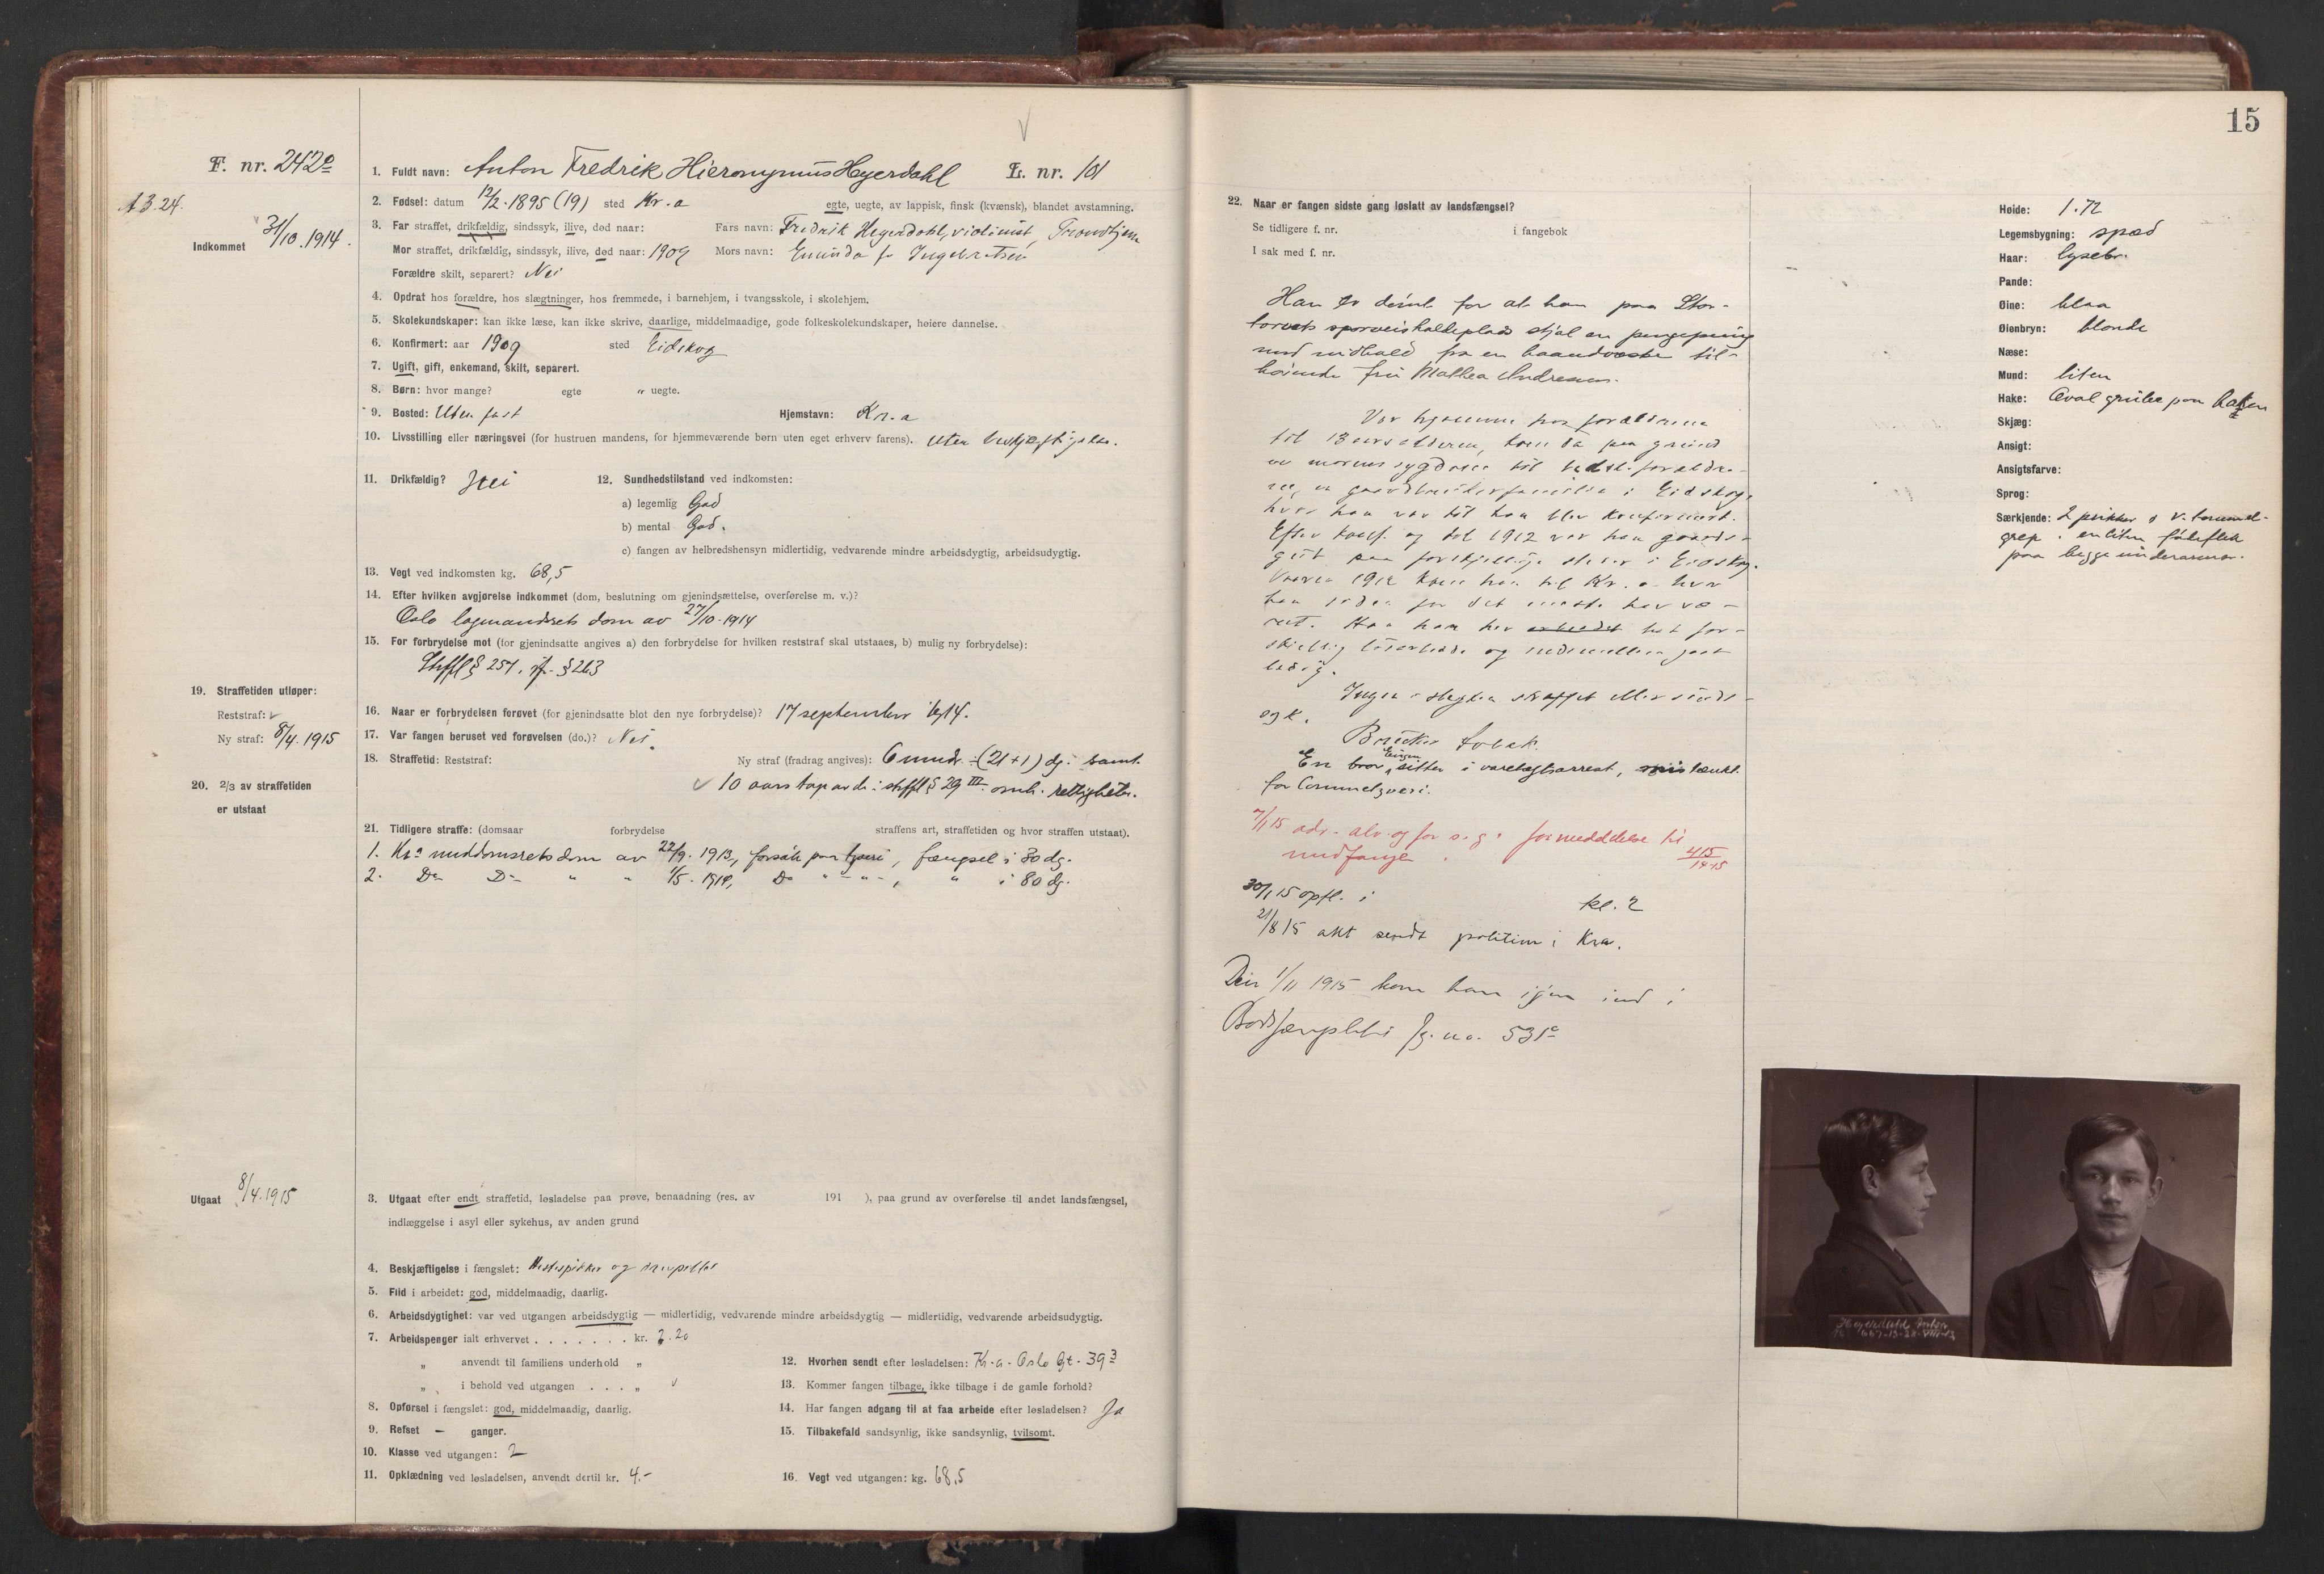 15
F. nr. 242a
L. nr. 101
A 3. 24.
Indkommet 31/10. 1914.
1. Fuldt navn: Anton Fredrik Hieronymus Heyerdahl
2. Fødsel: datum 12/2. 1895 (19) sted Kr.a egte, uegte, av lappisk, finsk (kvænsk), blandet avstamning.
3. Far straffet, drikfældig, sindssyk, ilive, død naar: Fars navn: Fredrik Heyerdahl, violinist, Trondhjem
Mor straffet, drikfældig, sindssyk, ilive, død naar: 1909 Mors navn: f. Ingebretsen
Forældre skilt, separert? Nei
4. Opdrat hos forældre, hos slægtninger, hos fremmede, i barnehjem, i tvangsskole, i skolehjem.
5. Skolekundskaper: kan ikke læse, kan ikke skrive, daarlige, middelmaadige, gode folkeskolekundskaper, høiere dannelse.
6. Konfirmert: aar 1909 sted Eidskog
7. Ugift, gift, enkemand, skilt, separert.
8. Børn: hvor mange? egte " uegte.
9. Bosted: Uten fast Hjemstavn: Kr.a
10. Livsstilling eller næringsvei (for hustruen mandens, for hjemmeværende børn uten eget erhverv farens). uten beskjæftigelse.
11. Drikfældig? Nei 12. Sundhedstilstand ved indkomsten:
a) legemlig God
b) mental God.
c) fangen av helbredshensyn midlertidig, vedvarende mindre arbeidsdygtig, arbeidsudygtig.
13. Vegt ved indkomsten kg. 68,5
14. Efter hvilken avgjørelse indkommet (dom, beslutning om gjenindsættelse, overførelse m. v.)?
Oslo lagmandsrets dom av 27/10. 1914
15. For forbrydelse mot (for gjenindsatte angives a) den forbrydelse for hvilken reststraf skal utstaaes, b) mulig ny forbrydelse):
Strffl § 257, jf. § 263
19. Straffetiden utløper:
Reststraf:
Ny straf: 8/4. 1915
16. Naar er forbrydelsen forøvet (for gjenindsatte blot den nye forbrydelse)? 17 september 1914.
17. Var fangen beruset ved forøvelsen (do.)? Nei.
18. Straffetid: Reststraf: Ny straf (fradrag angives): 6 mndr. ÷ (21 + 1) dg. samt
10 aars tap av de i strffl § 29 III omh. rettigheter.
20. 2/3 av straffetiden
er utstaat
21. Tidligere straffe: (domsaar forbrydelse straffens art, straffetiden og hvor straffen utstaat).
1. Kra meddomsrets dom av 22/9. 1913, forsøk paa tyveri, fængsel i 30 dg.
2. Do Do " " 1/5. 1914, Do " - " - , " i 80 dg.
Utgaat 8/4. 1915
3. Utgaat efter endt straffetid, løsladelse paa prøve, benaadning (res. av 191 ), paa grund av overførelse til andet landsfængsel,
indlæggelse i asyl eller sykehus, av anden grund
4. Beskjæftigelse i fængslet: og
5. Flid i arbeidet: god, middelmaadig, daarlig.
6. Arbeidsdygtighet: var ved utgangen arbeidsdygtig — midlertidig, vedvarende mindre arbeidsdygtig — midlertidig, vedvarende arbeidsudygtig.
7. Arbeidspenger ialt erhvervet . . . . . . . kr. 7.20
" anvendt til familiens underhold "
" i behold ved utgangen . . . "
8. Opførsel i fængslet: god, middelmaadig, daarlig.
9. Refset — ganger.
10. Klasse ved utgangen: 2
11. Opklædning ved løsladelsen, anvendt dertil kr. 4.-
12. Hvorhen sendt efter løsladelsen: Kr.a. Oslo Gt. 39 3
13. Kommer fangen tilbage, ikke tilbage i de gamle forhold?
14. Har fangen adgang til at faa arbeide efter løsladelsen? Ja
15. Tilbakefald sandsynlig, ikke sandsynlig, tvilsomt.
16. Vegt ved utgangen: kg. 68,5
22. Naar er fangen sidste gang løslatt av landsfængsel?
Se tidligere f. nr. i fangebok
I sak med f. nr.
Han er dømt for at han paa Stor-
torvets sporveisholdeplads stjal en pengepung
med indhold fra en haandvæske til-
hørende fru Mathea Andresen.
Var hjemme hos forældrene
til 13 aarsalderen, kom da paa grund
av morens sygdom til bedsteforældre-
ne, en gaardbrukerfamilie i Eidskog,
hvor han var til han blev konfirmert.
Efter konf. og til 1912 var han gaards-
gut paa forskjellige steder i Eidskog.
Vaaren 1912 kom han til Kr.a hvor
han siden for det meste har væ-
ret. Han har arbeidet hat for-
skjellig løsarbeide og indimellem gaat
ledig.
Ingen i slegten straffet eller sinds-
syk.
Bruker tobak.
En bror, Einar, sitter i varetægtsarrest, mistænkt
for lommetyveri.
7/1 15 adv. alv. og for s. g. for meddelelse til
medfange. 415/14-15
30/1 15 opfl. i kl. 2
21/8 15 akt sendt politiet i Kra.
Den 1/11 1915 kom han igjen ind i
Botsfængslet fg. no. 531a
Høide: 1.72
Legemsbygning: spæd
Haar: lysebr.
Pande:
Øine: blaa
Øienbryn: blonde
Næse:
Mund: liten
Hake: Oval grube paa haken
Skjæg:
Ansigt:
Ansigtsfarve:
Sprog:
Særkjende: 2 prikker i v. tommel-
grep. en litenføflek
paa begge underarmer.
Heyerdahl Anton